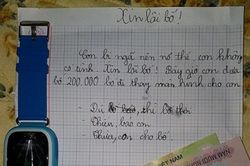 Xin lỗi bố!
Con bị ngã nên nó thế, con không
cố tình. Xin lỗi bố! Bây giờ con đưa
bố 200.000 bo đi thay màn hình cho con.
Dù thì
Chúa, ban con
Chúa, con cho bố.
VIỆT NAM